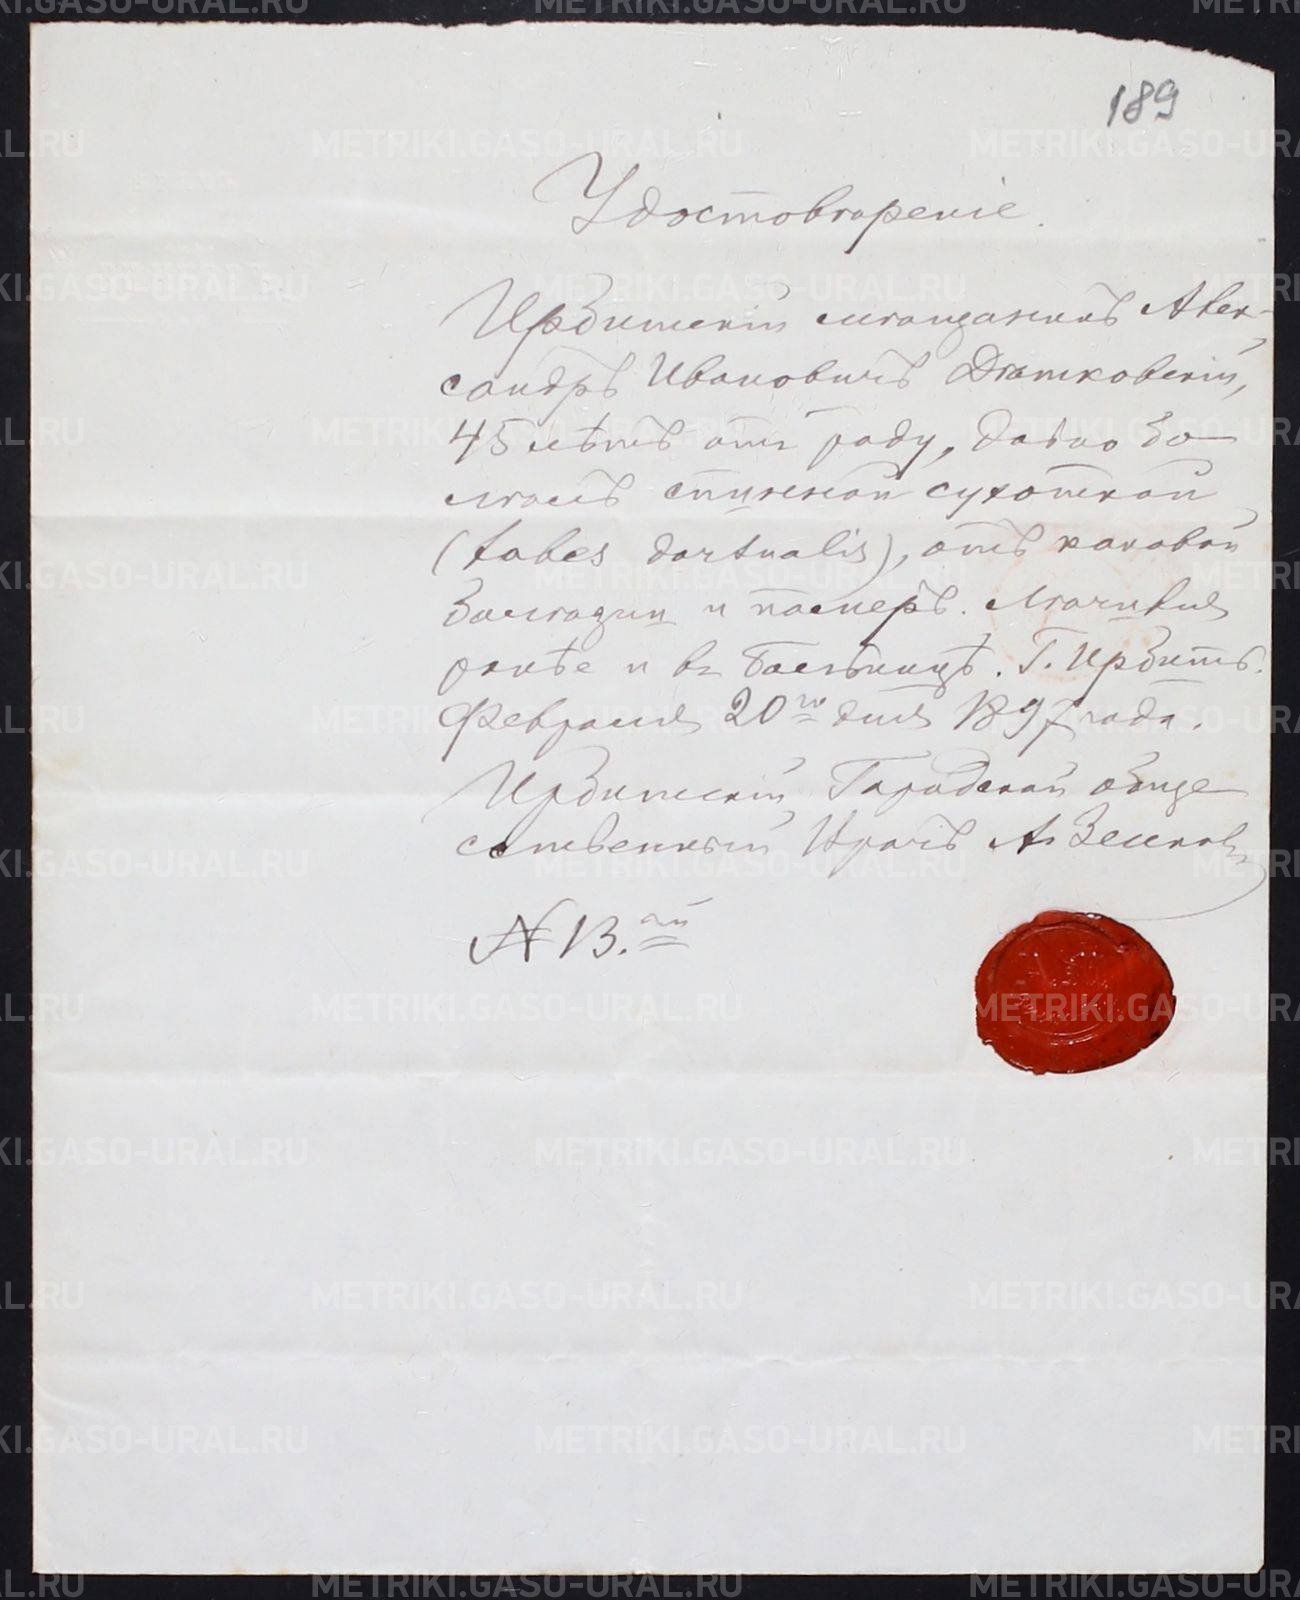 189
Удостоверенiе.
Ирбитскiй мещанинъ Алек-
сандръ Ивановичъ Дятковскiй,
45 лѣтъ отъ роду, давно бо-
лелъ спинной сухоткой
(tabes dorsualis), отъ каковой
болезни и померъ. Лечился
ранѣе и въ больницѣ. Г. Ирбить.
Февраля 20го дня 1897 года.
Ирбитскiй Городской обще
ственный Врачъ А.
N 13.ый